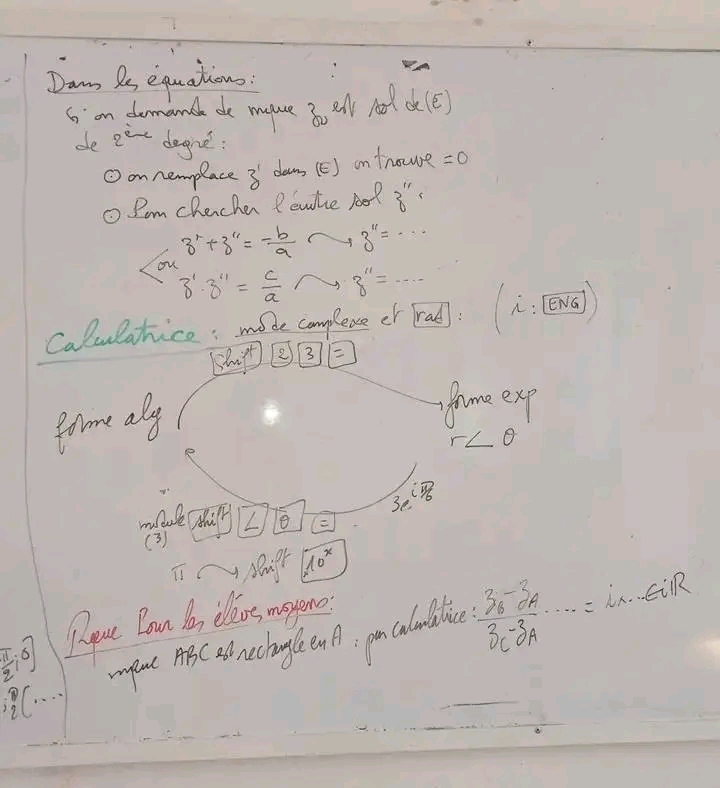 Dans les équations:
Si on demande de mque z₀ est sol de (E)
de 2ème degré:
⊙ on remplace z' dans (E) on trouve = 0
⊙ Pour chercher l'autre sol z'':
z' + z'' = -b/a ⟿ z'' = ...
ou
z' . z'' = c/a ⟿ z'' = ....
Calculatrice: mode complexe et rad: (i: ENG)
Shift 2 3 =
forme alg
forme exp
r∠ θ
3e^{iπ/6}
module shift ∠ θ =
(3)
π ⟿ shift ,10ˣ
Rque Pour les élèves moyens:
mque ABC est rectangle en A: par calculatrice: (z_B - z_A)/(z_C - z_A) .... = i x... ∈ iℝ